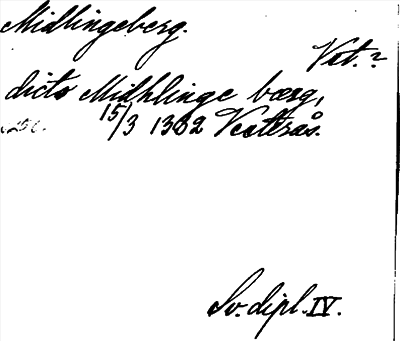 Midlingeberg.
Vet.?
dicto Midhlinge bærg,
15/3 1332 Vesterås.
Sv. dipl. IV.